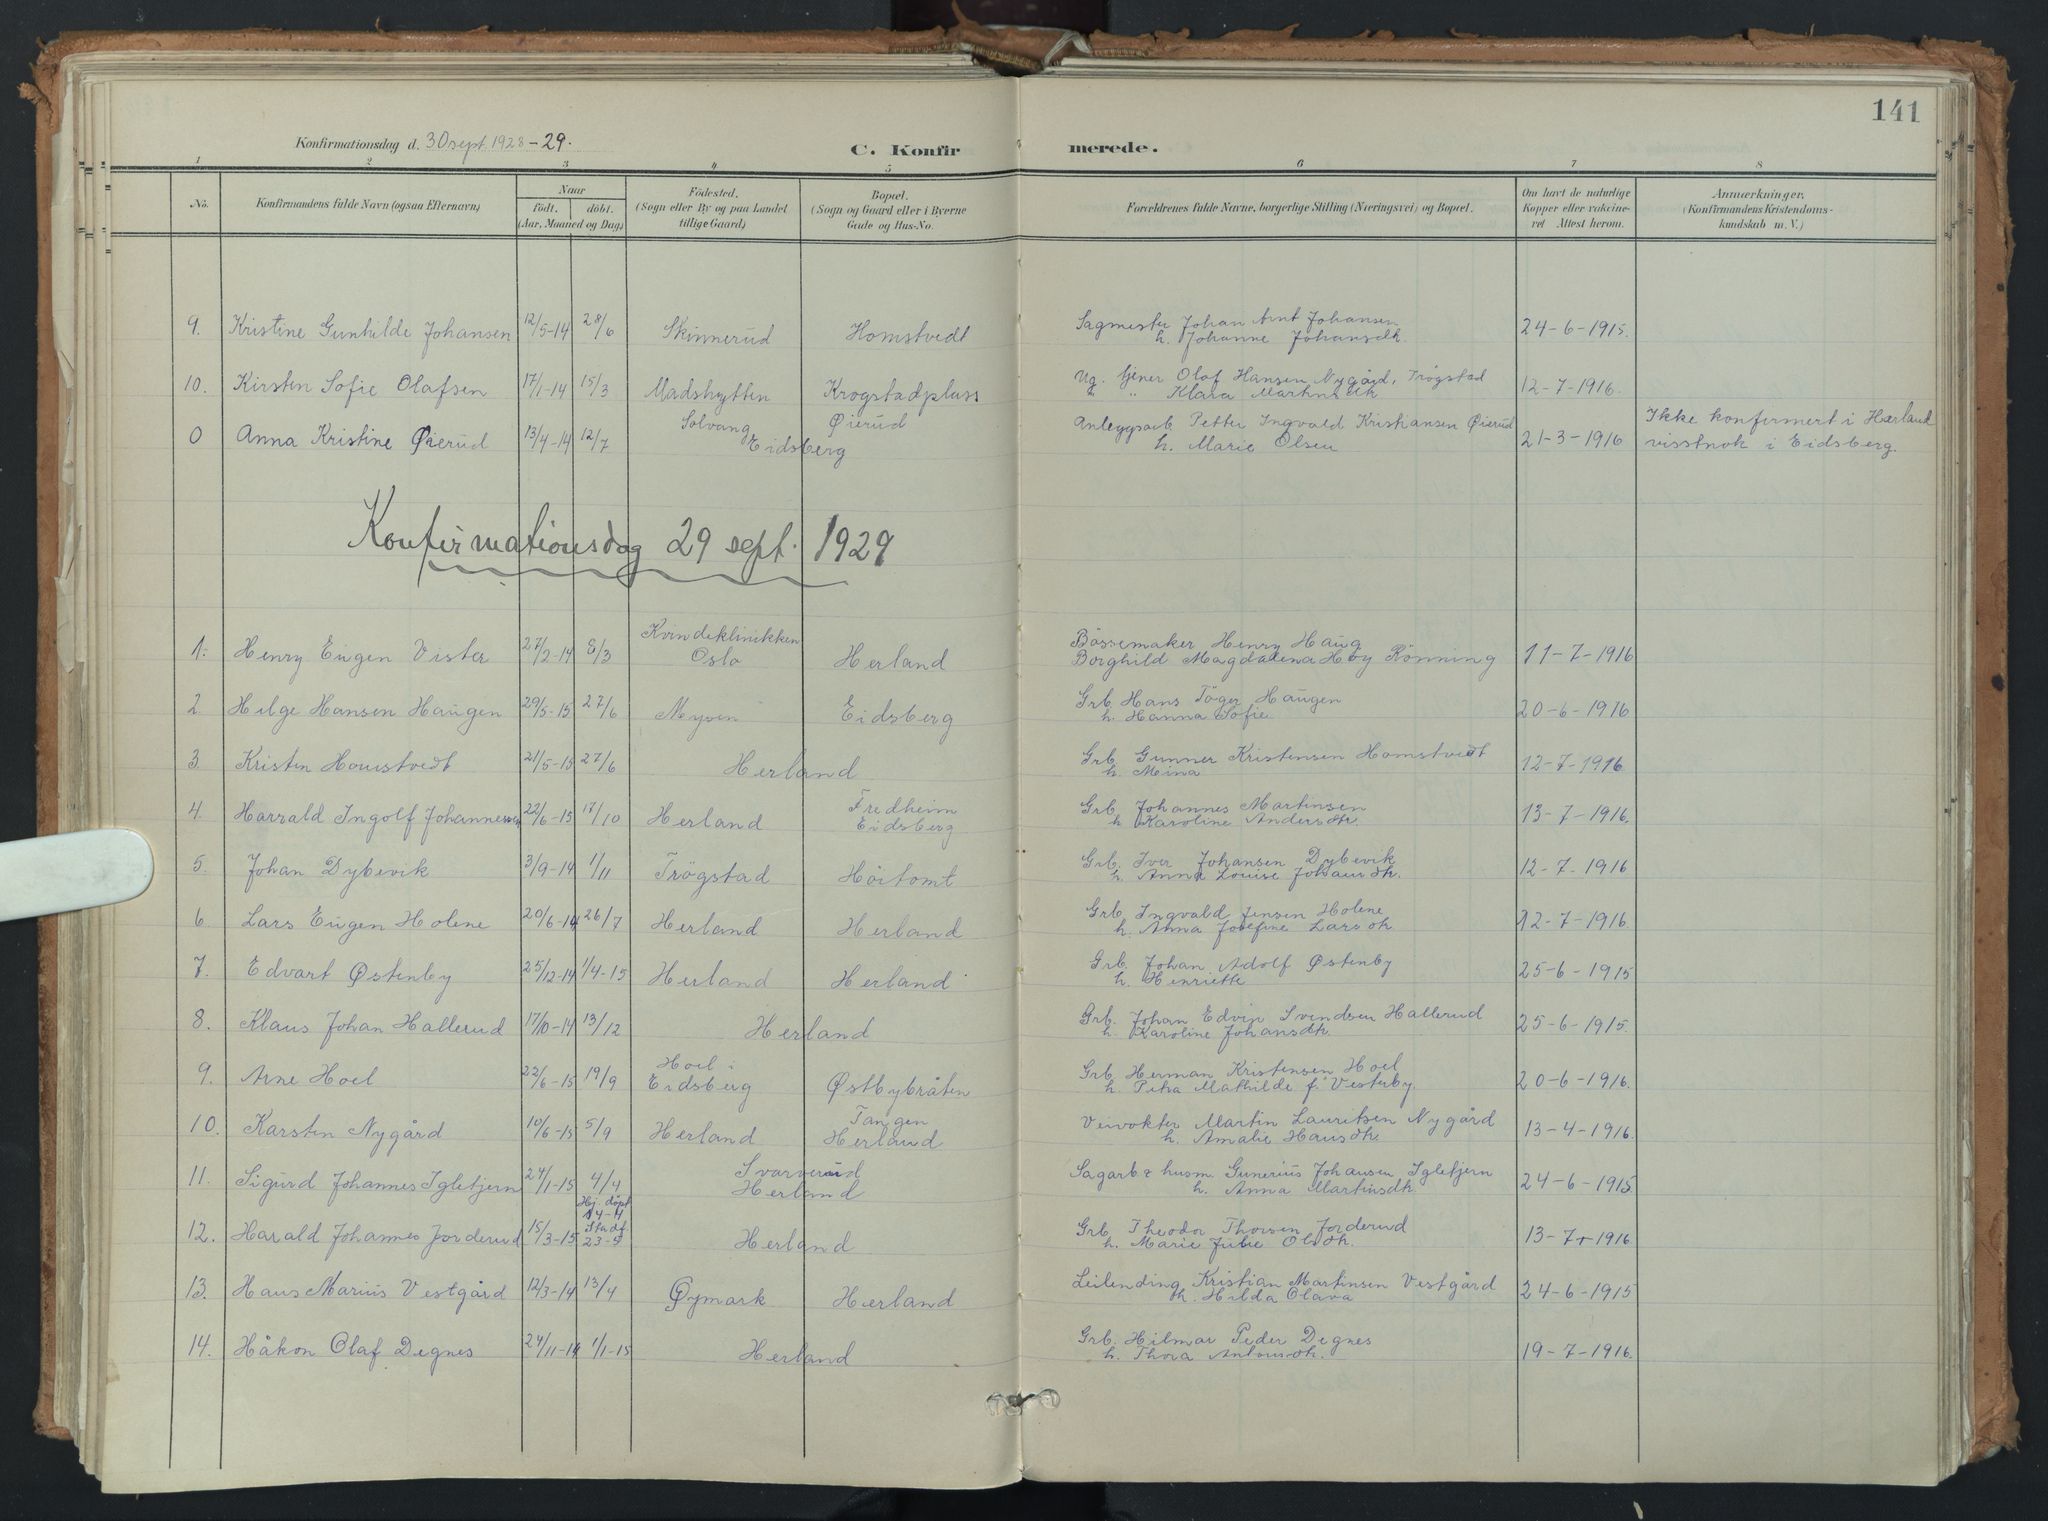 141
Konfirmationsdag d. 30 sept. 1928 - 29.
C. Konfirmerede.
1 2 3 4 5 6 7 8
No.
Konfirmandens fulde Navn (ogsaa Efternavn)
Naar
födt. döbt.
(Aar, Maaned og Dag)
Födested.
(Sogn eller By og paa Landet tillige Gaard)
Bopæl.
(Sogn og Gaard eller i Byerne Gade og Hus-No.
Forældrenes fulde Navne, borgerlige Stilling (Næringsvei) og Bopæl.
Om havt de naturlige Kopper eller vakcineret Attest herom.
Anmærkninger.
(Konfirmandens Kristendomskundskab m. V.)
9. Kristine Gunhilde Johansen 12/5-14 28/6 Skinnerud Homstvedt Sagmester Johan Arnt Johansen h. Johanne Johansdtr. 24-6-1915.
10. Kirsten Sofie Olafsen 17/1-14 15/3 Madshytten Krogstadplass Ug. tjener Olaf Hansen Nygård, Trögstad " " Klara Martinsdtr 12-7-1916.
0 Anna Kristine Øierud 13/4-14 12/7 Solvang Øierud Eidsberg Anleggsarb. Petter Ingvald Kristiansen Øierud h. Marie Olsen 21-3-1916 Ikke konfermert i Hærland visstnok i Eidsberg.
Konfirmationsdag 29 sept. 1929
1. Henry Eugen Vister 27/2-14 8/3 Kvindeklinikken Oslo Herland Bössemaker Henry Haug Borghild Magdalena Høy Rönning 11-7-1916
2. Helge Hansen Haugen 29/5-15 27/6 Mysen Eidsberg Grb. Hans Töger Haugen h. Hanna Sofie 20-6-1916
3. Kristen Homstvedt 21/5-15 27/6 Herland Grb. Gunner Kristensen Homstvedt h. Mina 12-7-1916
4. Harrald Ingolf Johannessen 22/6-15 17/10 Herland Fredheim Eidsberg Grb. Johannes Martinsen h. Karoline Andersdtr. 13-7-1916.
5. Johan Dybevik 3/9-14 1/11 Trögstad Höitomt Grb. Iver Johansen Dybevik h. Anna Louise Johansdtr. 12-7-1916
6. Lars Eugen Holene 20/6-14 26/7 Herland Herland Grb. Ingvald Jensen Holene h. Anna Josefine Larsdtr 12-7-1916
7. Edvart Østenby 25/12-14 1/4-15 Herland Herland Grb. Johan Adolf Østenby h. Henriette 25-6-1915
8. Klaus Johan Hallerud 17/10-14 13/12 Herland Grb. Johan Edvin Svendsen Hallerud h. Karoline Johansdtr. 25-6-1915.
9. Arne Hoel 22/6-15 19/9 Hoel i Eidsberg Østbybråten Grb. Herman Kristensen Hoel h. Petra Mathilde f. Vesterby. 20-6-1916.
10. Karsten Nygård 10/6-15 5/9 Herland Tangen Herland Veivokter Martin Lauritsen Nygård h. Amalie Hansdtr. 13-4-1916.
11. Sigurd Johannes Igletjern 24/1-15 4/4 Svarverud Herland Sagarb & husm. Gunerius Johansen Igletjern h. Anna Martinsdtr. 24-6-1915
12. Harald Johannes Jorderud 15/3-15 Hj. döpt 14-4 Stadf. 23-5 Herland Grb. Theodor Thorsen Jorderud h. Marie Julie Olsdtr. 13-7-1916
13. Hans Marius Vestgård 12/3-14 13/4 Øymark Herland Leilending Kristian Martinsen Vestgård h. Hilda Olava 24-6-1915
14. Håkon Olaf Degnes 24/11-14 1/1-15 Herland Grb. Hilmar Peder Degnes h. Thora Antonsdtr. 19-7-1916.